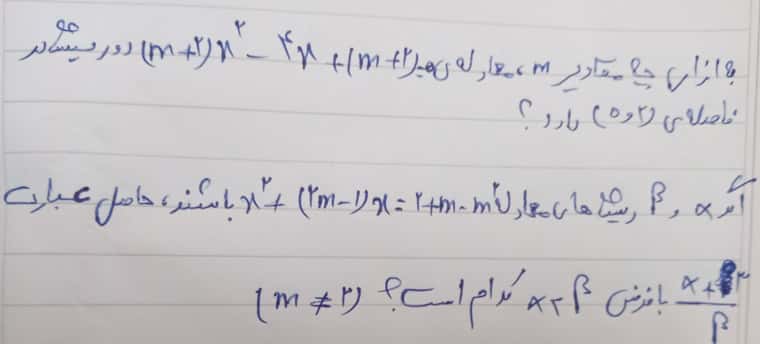 به ازای چه مقادیر m، معادله‌ی (m+۲)x² - ۴x + (m+۲)=۰ دو ریشه در
فاصله‌ی (۰ و ۲) دارد؟
اگر α و β ریشه‌های معادله x² + (۲m-۱)x = ۲+m-m² باشند، حاصل عبارت
(α+۳)/β با فرض α>β کدام است؟ (m ≠ ۲)